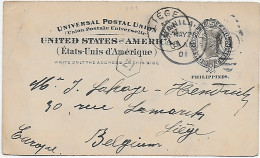 UNIVERSAL POSTAL UNION
(Union Postale Universelle)
UNITED STATES OF AMERICA
(États-Unis d'Amérique)
WRITE ONLY THE ADDRESS ON THIS SIDE
LIÉGE
MANILA
MAY 26
01
PHILIPPINES.
Mr J. Lahaye-Hendrick
30 rue Lamarck
Liége
Belgium
Europe